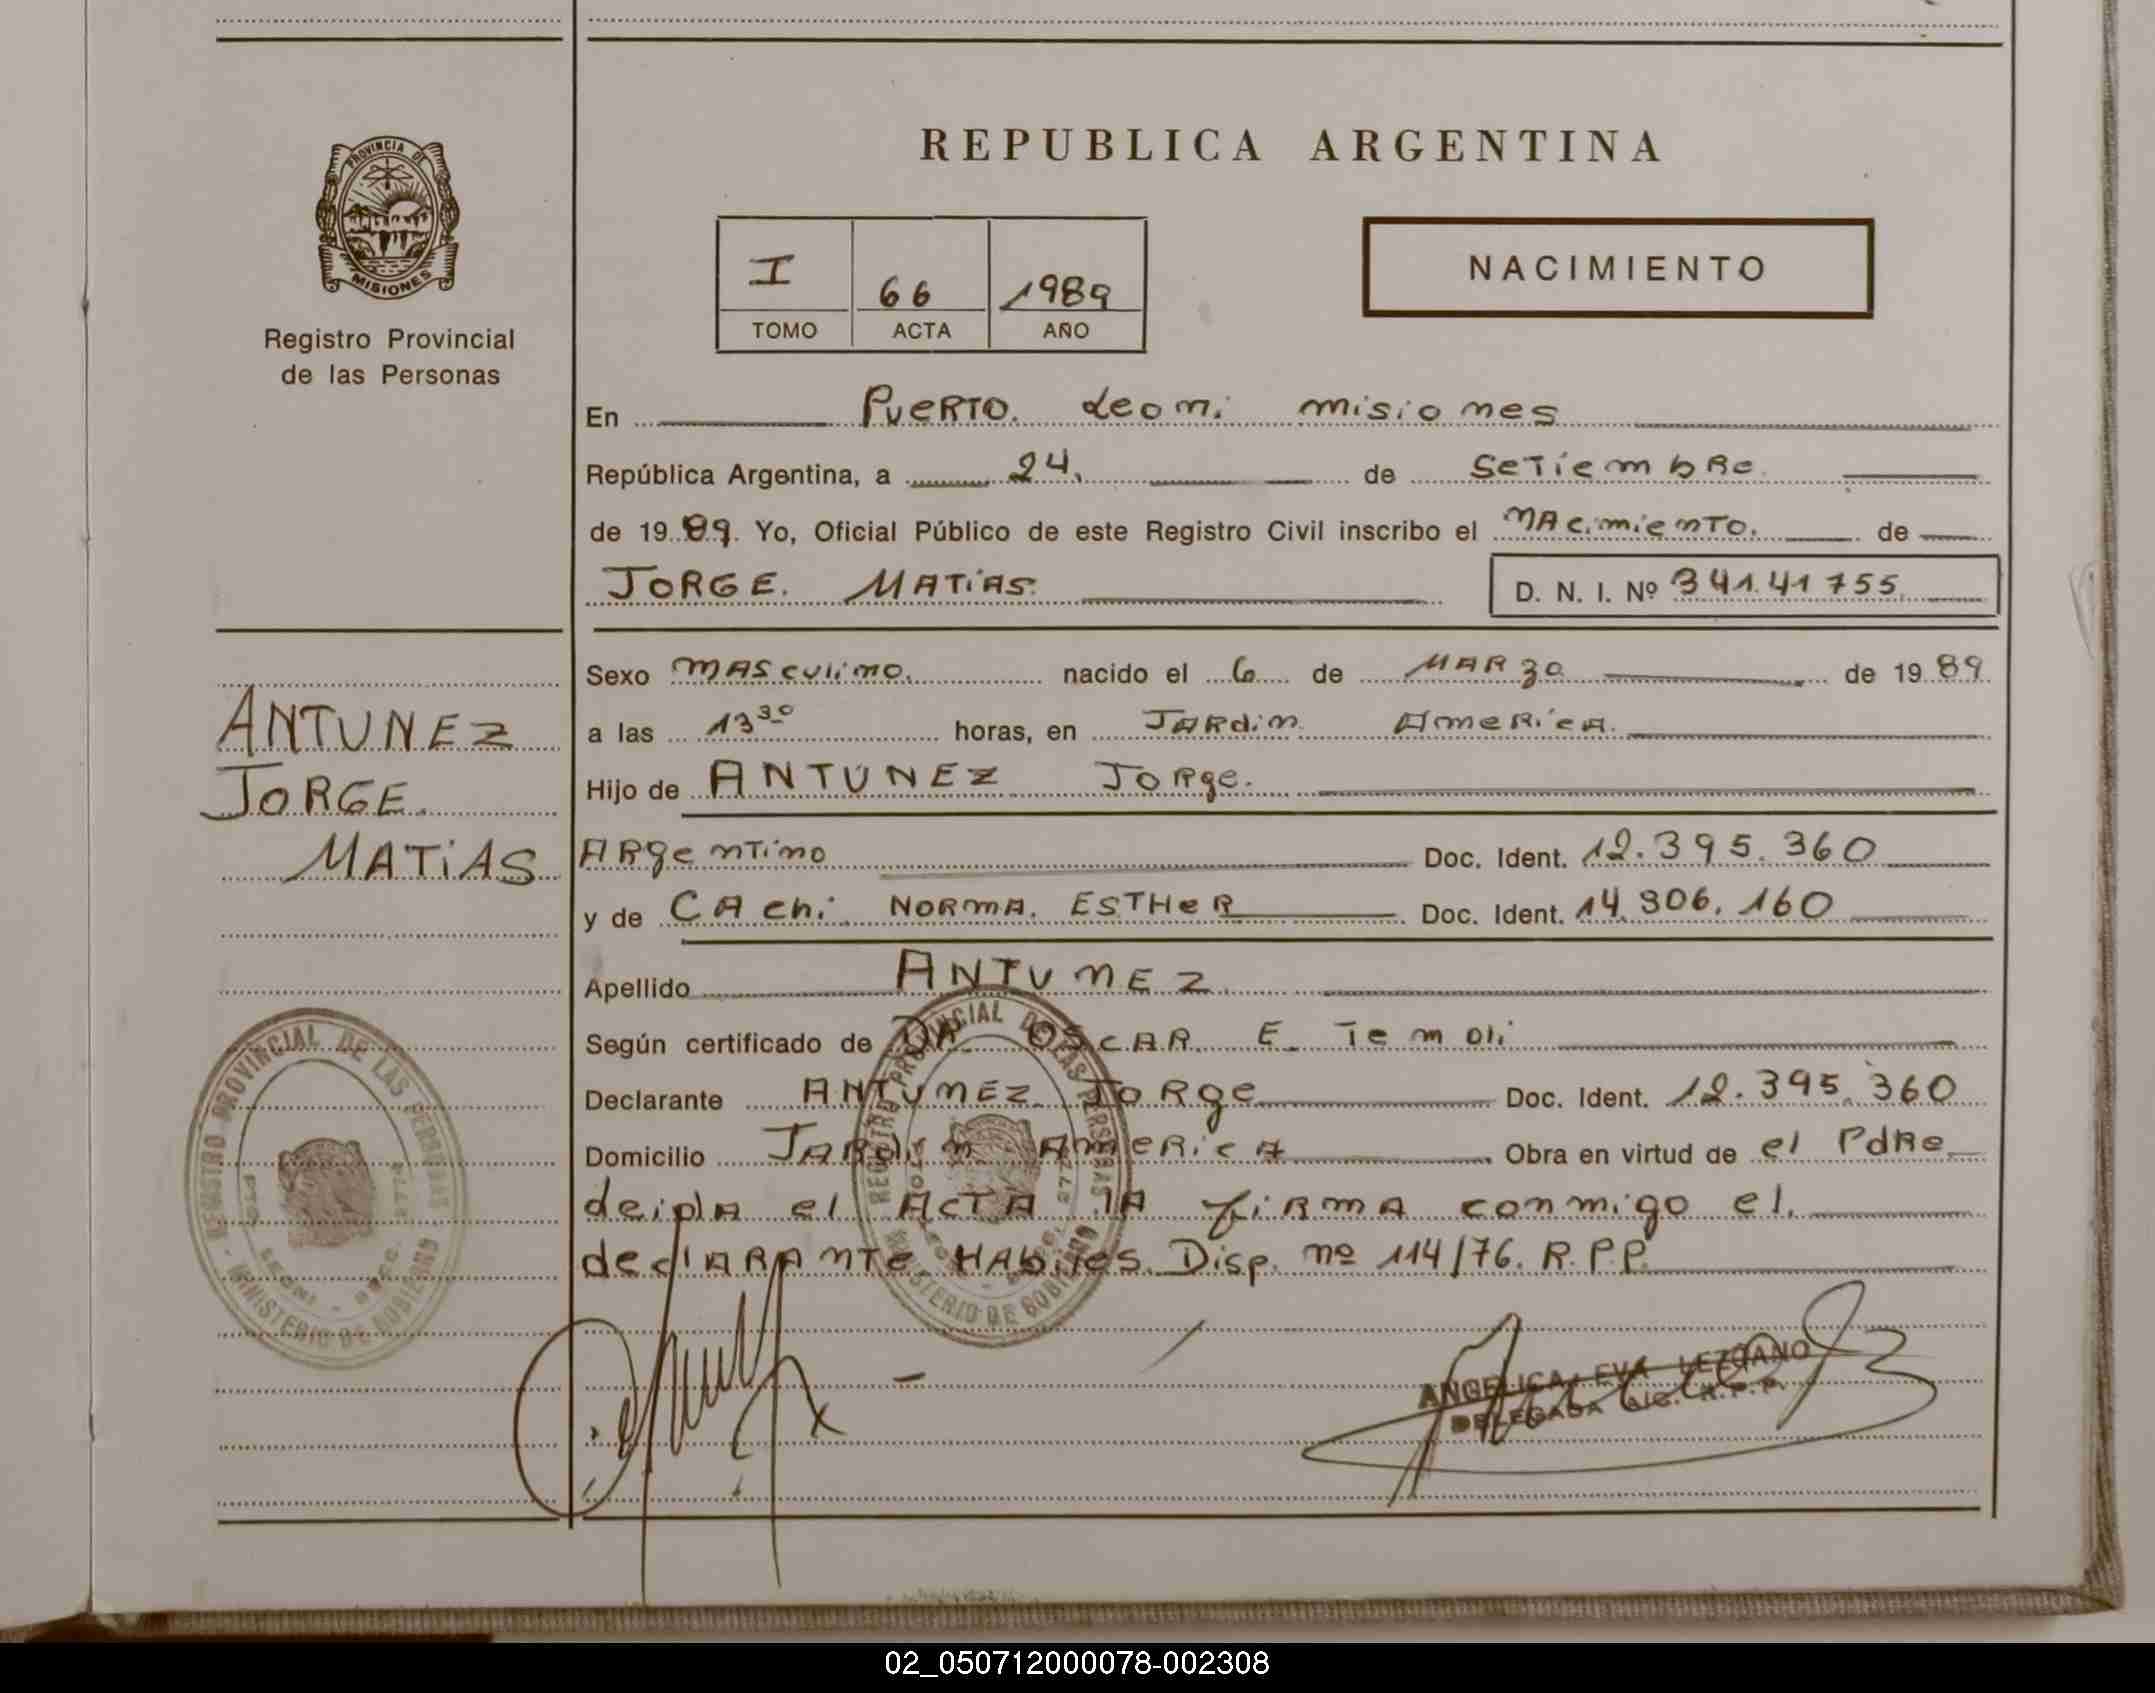 PROVINCIA DE
MISIONES
Registro Provincial
de las Personas
REPUBLICA ARGENTINA
I 66 1989
TOMO ACTA AÑO
NACIMIENTO
En Puerto Leoni misiones
República Argentina, a 24. de Setiembre.
de 19 89. Yo, Oficial Público de este Registro Civil inscribo el nacimiento. de
JORGE. MATIAS. D. N. I. Nº 341.41755.
ANTUNEZ
JORGE.
MATIAS
Sexo masculino. nacido el 6 de MARZO de 19 89
a las 13 30 horas, en Jardin America.
Hijo de ANTUNEZ Jorge.
Argentino Doc. Ident. 12.395.360
y de CAchi NORMA. ESTHER Doc. Ident. 14.306.160
Apellido ANTUNEZ
Según certificado de DR. OSCAR E. Temoli
Declarante ANTUNEZ Jorge Doc. Ident. 12.395.360
Domicilio Jardin America Obra en virtud de el Pdre
deipla el ACTA la firma conmigo el.
declarante Habiles. Disp. nº 114/76. R.P.P.
REGISTRO PROVINCIAL DE LAS PERSONAS
MINISTERIO DE GOBIERNO
REGISTRO PROVINCIAL DE LAS PERSONAS
MINISTERIO DE GOBIERNO
ANGELICA EVA LEZCANO
DELEGADA R.P.P.
02_050712000078-002308